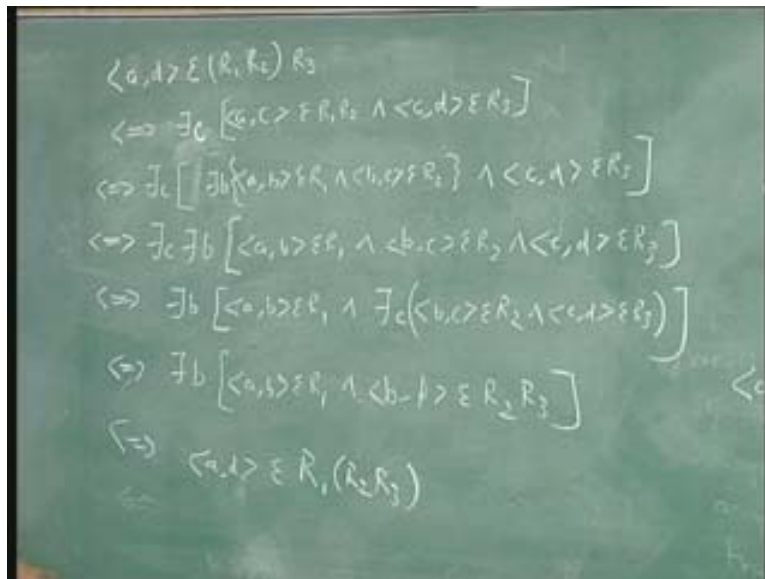 <a,d> ε (R₁R₂) R₃
<=> ∃c [<a,c> ε R₁R₂ ∧ <c,d> ε R₃]
<=> ∃c [ ∃b{<a,b> ε R₁ ∧ <b,c> ε R₂} ∧ <c,d> ε R₃]
<=> ∃c ∃b [<a,b> ε R₁ ∧ <b,c> ε R₂ ∧ <c,d> ε R₃]
<=> ∃b [<a,b> ε R₁ ∧ ∃c(<b,c> ε R₂ ∧ <c,d> ε R₃)]
<=> ∃b [<a,b> ε R₁ ∧ <b,d> ε R₂R₃]
<=> <a,d> ε R₁(R₂R₃)